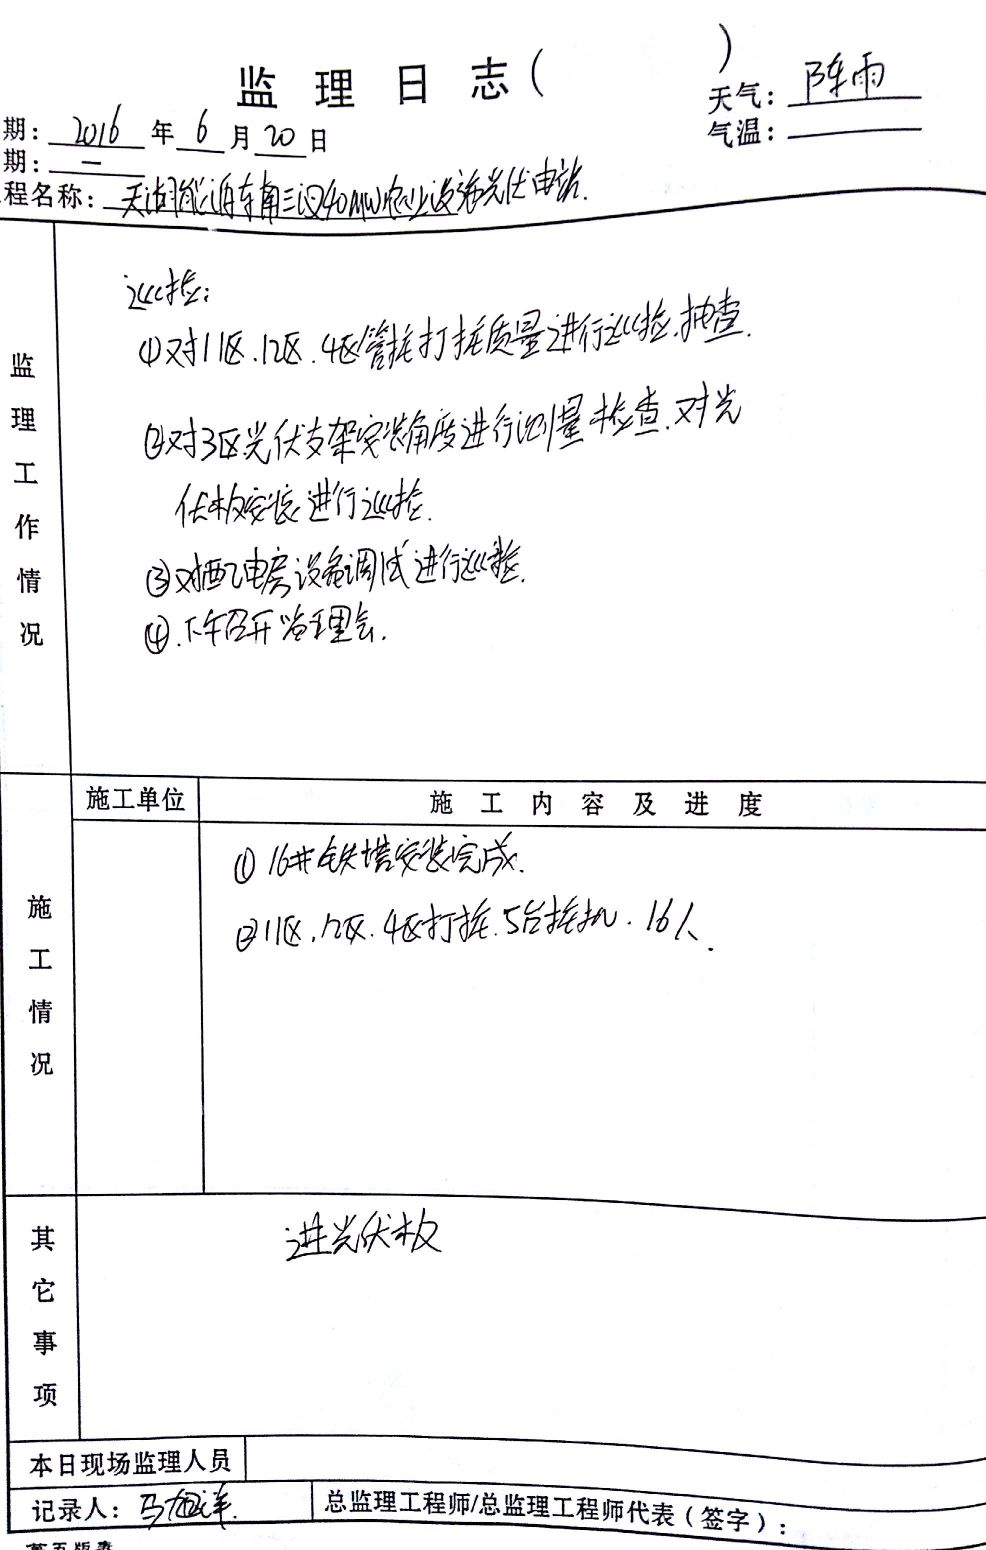 监理日志( )
天气：阵雨
期：2016年6月20日
气温：
期：一
程名称：天湖能泊东南三汊40MW农业设施光伏电站.
监理工作情况
巡检：
①对11区.12区.4区管桩打桩质量进行巡检.抽查.
②对3区光伏支架安装角度进行测量检查.对光
伏板安装进行巡检.
③对配电房设备调试进行巡检.
④.下午召开监理会.
施工单位
施工内容及进度
施工情况
①16#铁塔安装完成.
②11区.12区.4区打桩.5台桩机.16人.
其它事项
进光伏板
本日现场监理人员
记录人：马旭洋.
总监理工程师/总监理工程师代表（签字）：